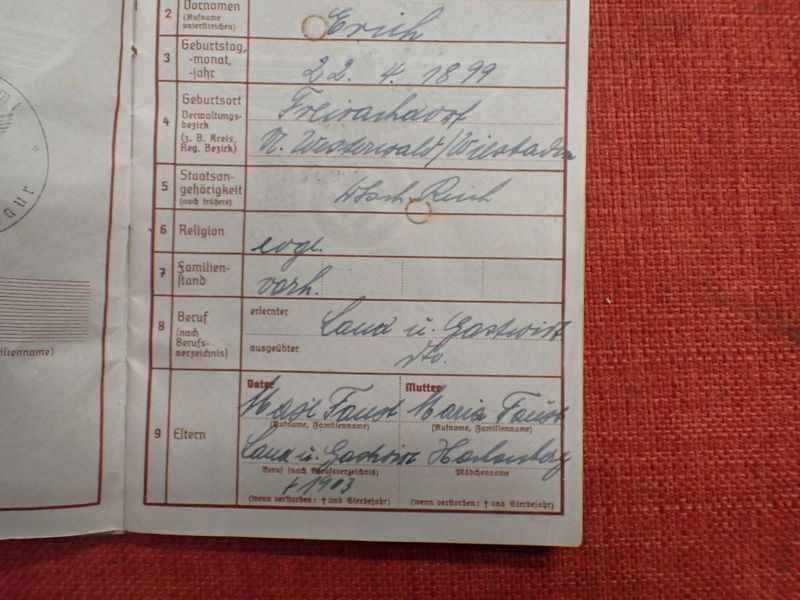 2 Vornamen Erich
(Rufname
unterstreichen)
3 Geburtstag, 22. 4. 1899
-monat,
-jahr
4 Geburtsort Freirachdorf
Verwaltungs-
bezirk
(z. B. Kreis,
Reg. Bezirk) U. Westerwald/Wiesbaden
5 Staatsan-
gehörigkeit Dtsch. Reich
(auch frühere)
6 Religion evgl.
7 Familien-
stand verh.
8 Beruf erlernter Land u. Gastwirt
(nach
Berufs-
verzeichnis) ausgeübter dto.
Vater Mutter
Faust Maria Faust
(Rufname, Familienname) (Rufname, Familienname)
9 Eltern Land u. Gastwirt
Beruf (nach Berufsverzeichnis) Mädchenname
† 1903
(wenn verstorben: † und Sterbejahr) (wenn verstorben: † und Sterbejahr)
ilienname)